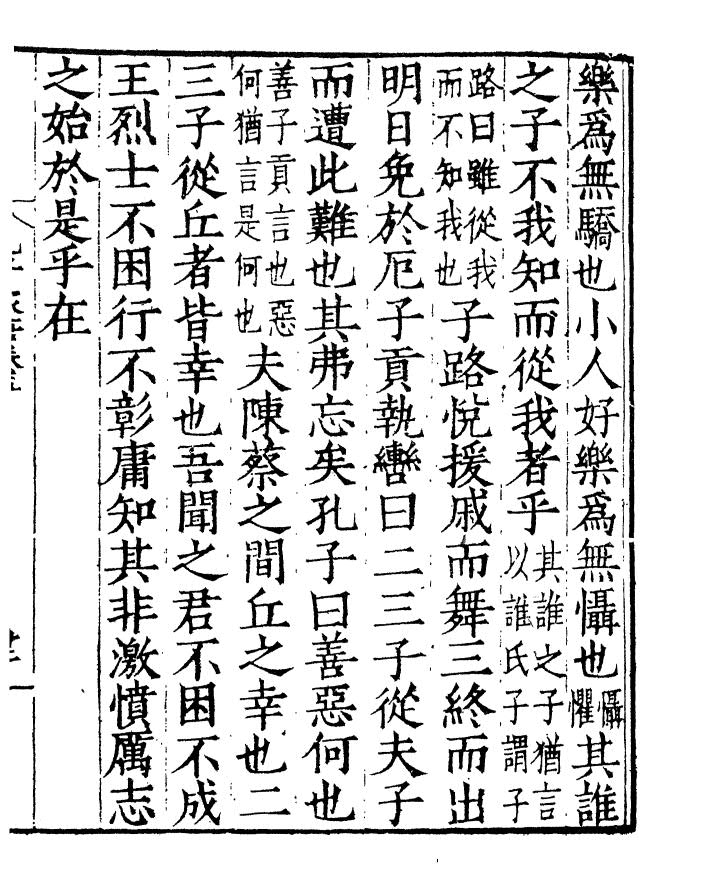 樂爲無驕也小人好樂爲無懾也懾懼其誰
之子不我知而從我者乎其誰之子猶言以誰氏子謂子
路曰雖從我而不知我也子路悅援戚而舞三終而出
明日免於厄子貢執轡曰二三子從夫子
而遭此難也其弗忘矣孔子曰善惡何也
善子貢言也惡何猶言是何也夫陳蔡之間丘之幸也二
三子從丘者皆幸也吾聞之君不困不成
王烈士不困行不彰庸知其非激憤厲志
之始於是乎在